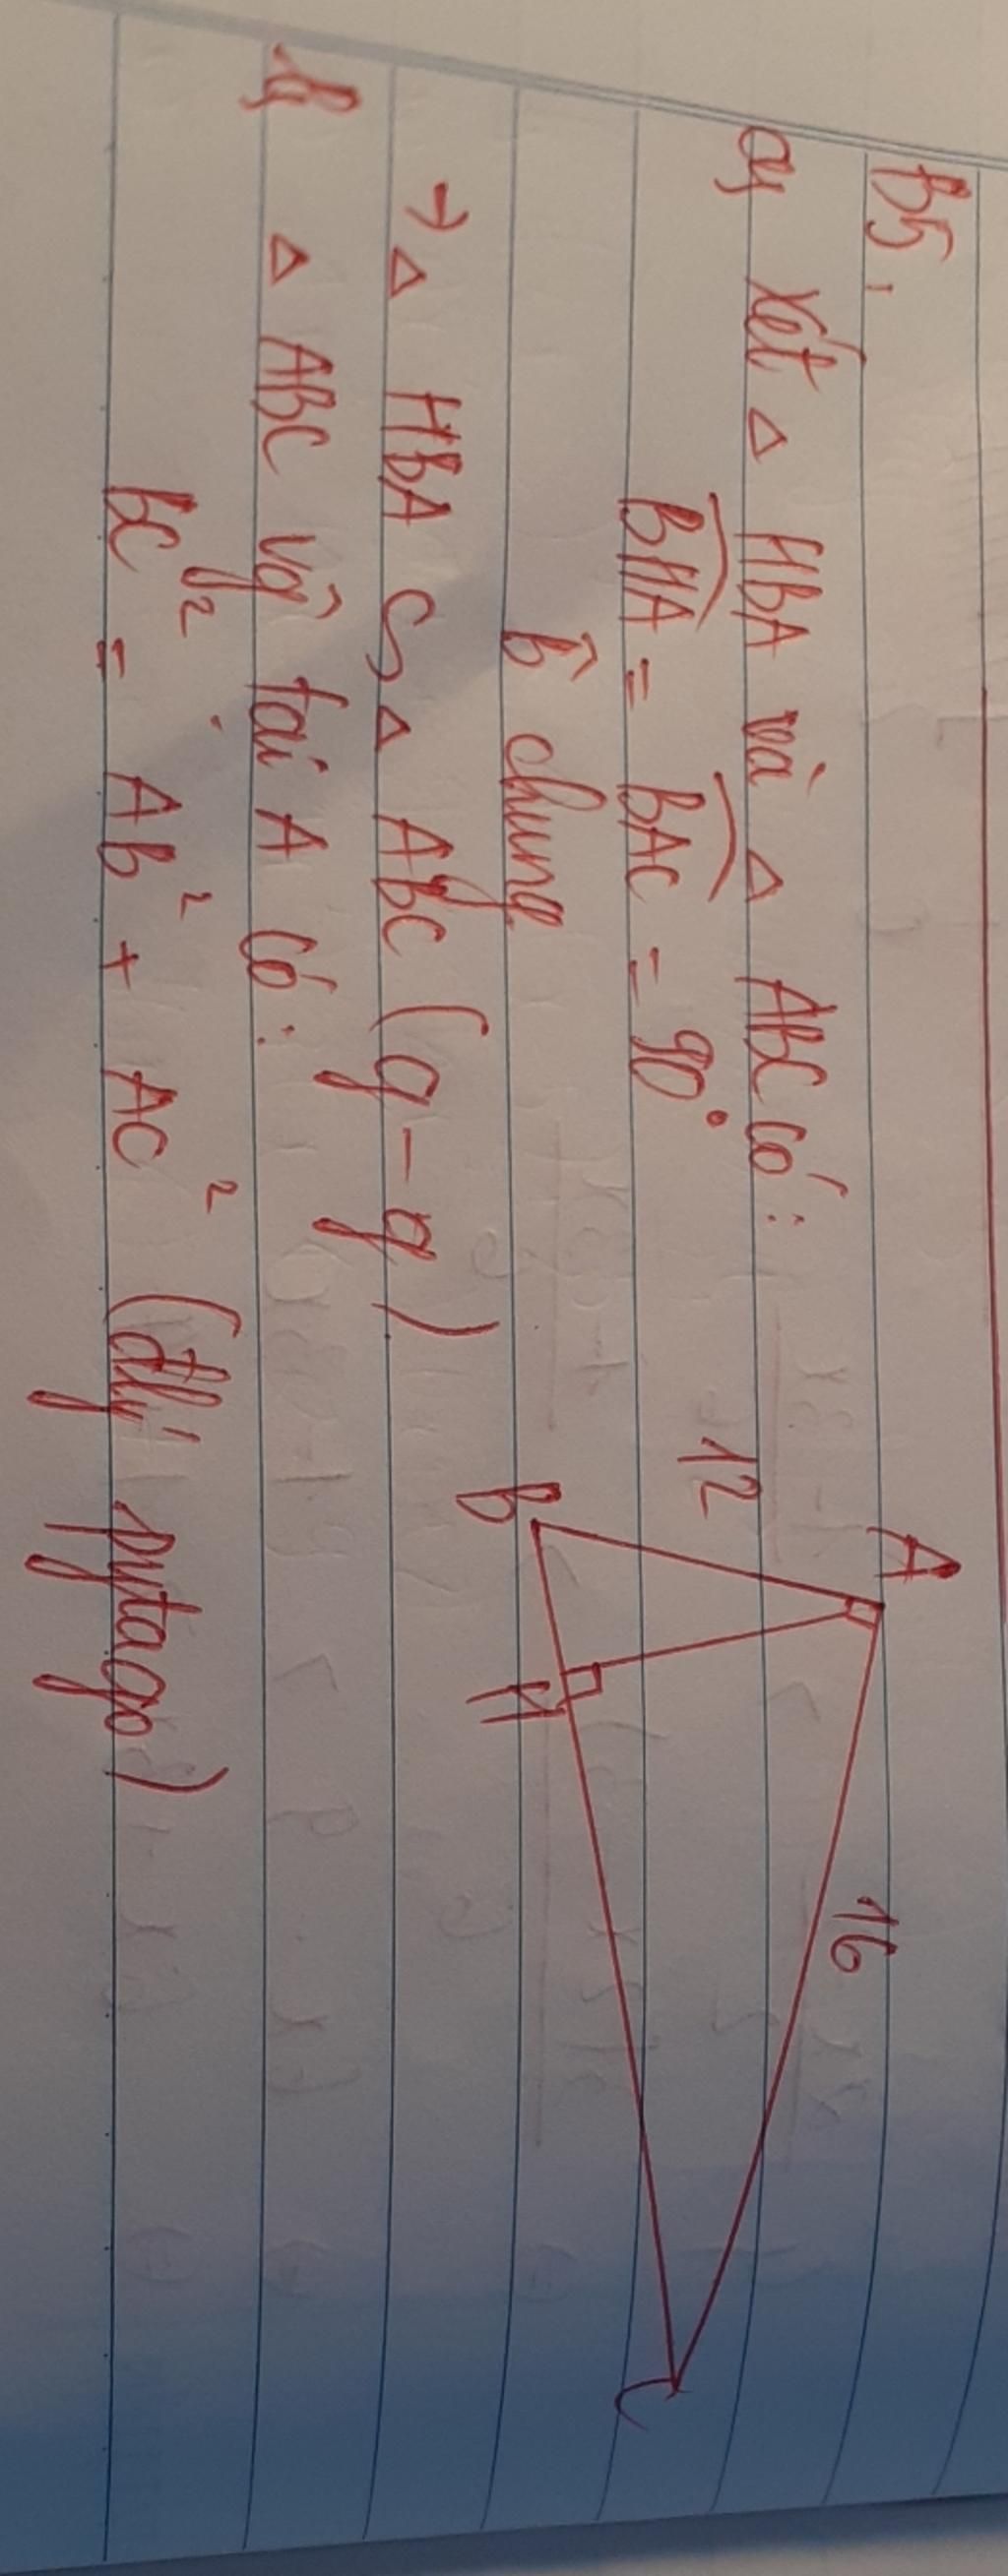 B5,
a, Xét △ HBA và △ ABC có:
BHA = BAC = 90°
B̂ chung
→ △ HBA ᔕ △ ABC (g-g)
b, △ ABC vĝ tại A có:
BC² = AB² + AC² (đlý pytago)
A
12
16
B
H
C